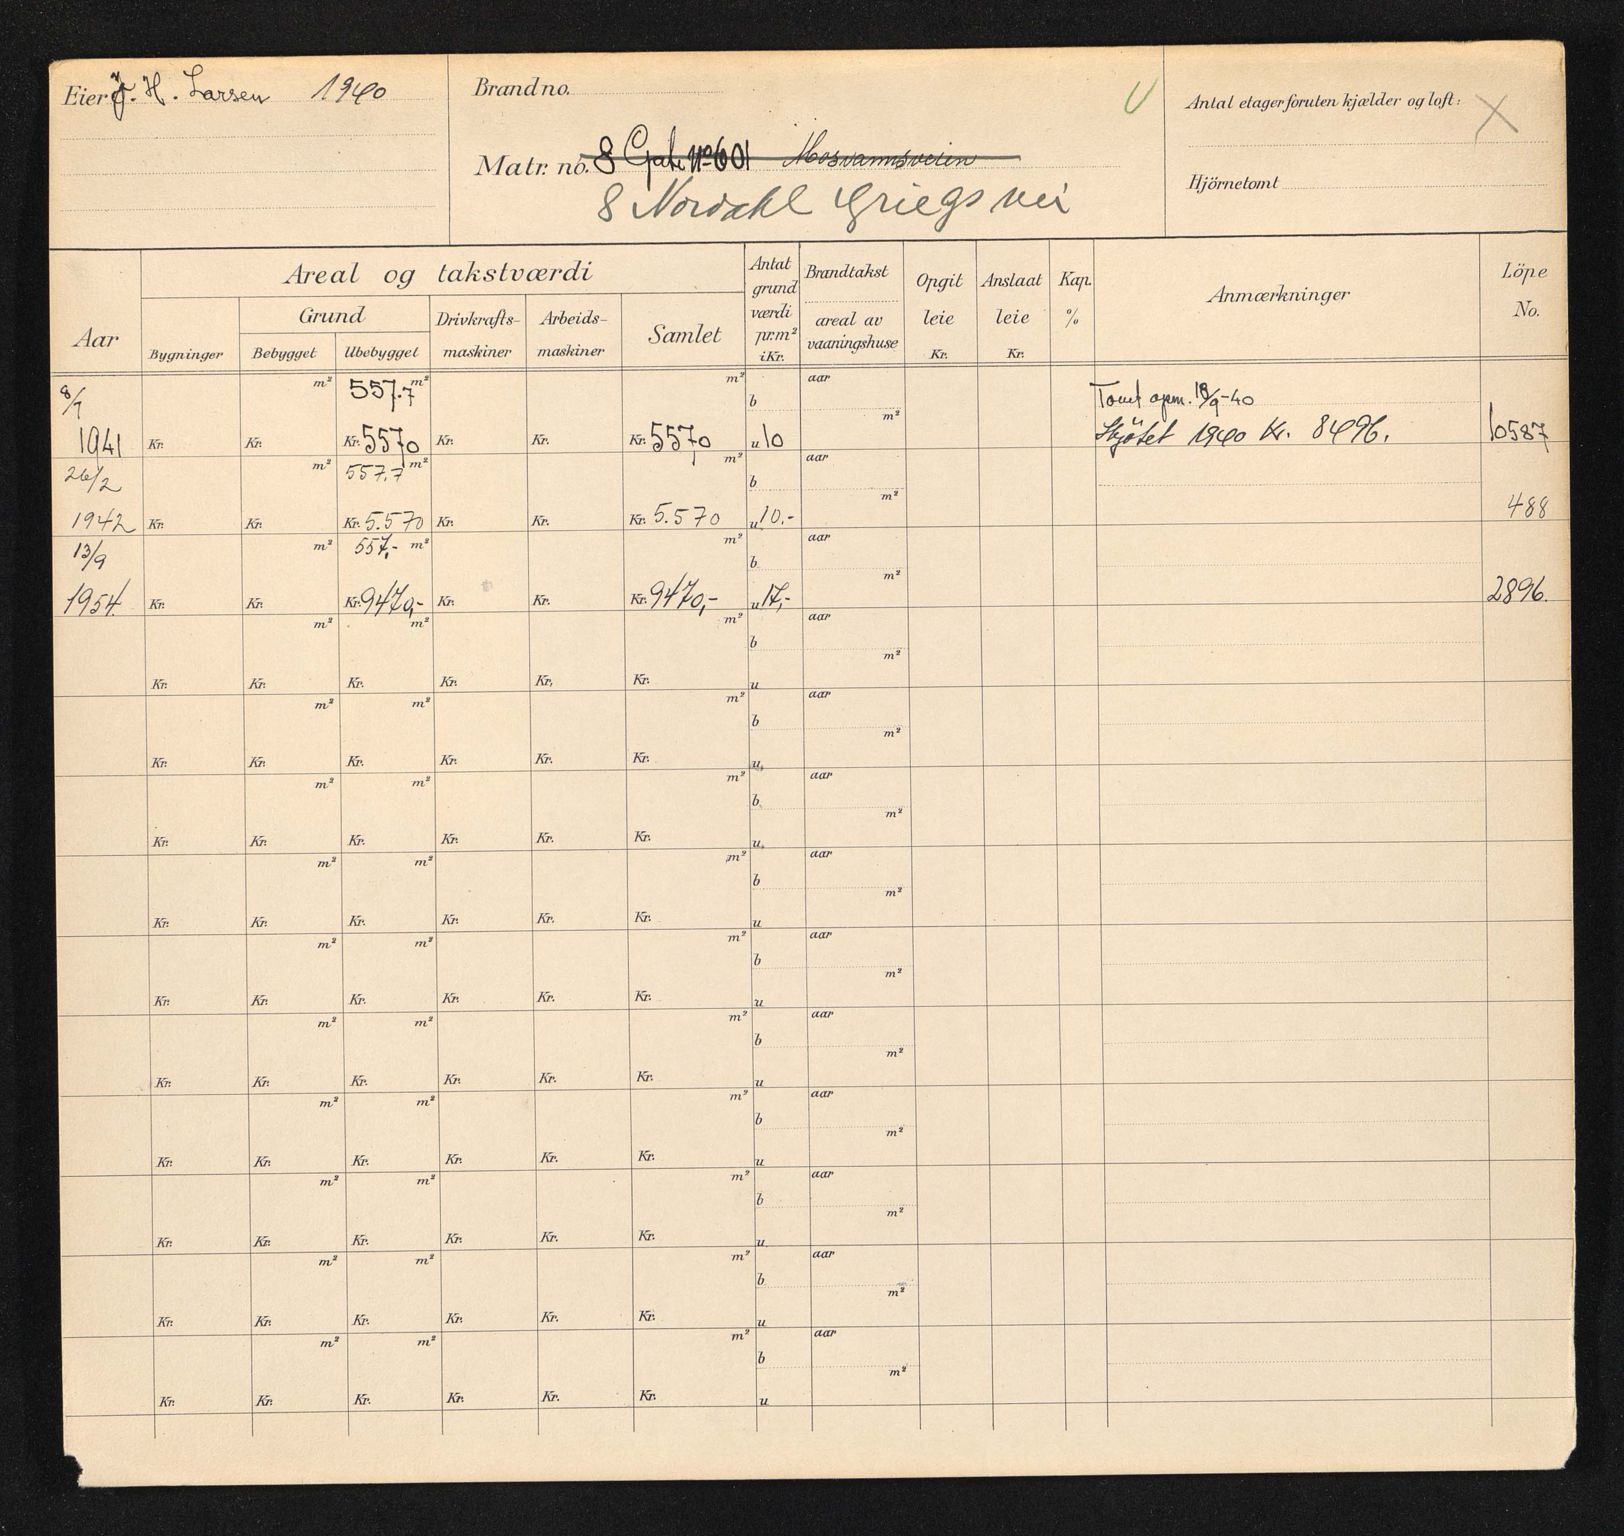 Eier J. H. Larsen 1940
Brand no.
Matr. no. 8 Gate No 601 Mosvannsveien
8 Nordahl Griegs vei
Antal etager foruten kjælder og loft:
Hjörnetomt
Areal og takstværdi
Aar
Bygninger
Grund
Bebygget Ubebygget
Drivkrafts-
maskiner
Arbeids-
maskiner
Samlet
Antat
grund
værdi
pr. m²
i Kr.
Brandtakst
areal av
vaaningshuse
Opgit
leie
Kr.
Anslaat
leie
Kr.
Kap.
%
Anmærkninger
Löpe
No.
8/7 m² 557.7 m² m² b aar m² Tomt opm. 18/9-40
1941 Kr. Kr. Kr. 5570 Kr. Kr. Kr. 5570 u 10 Skjötet 1940 Kr. 8496. 10587
26/2 m² 557.7 m² m² b aar m²
1942 Kr. Kr. Kr. 5.570 Kr. Kr. Kr. 5.570 u 10.- 488
13/9 m² 557,- m² m² b aar m²
1954. Kr. Kr. Kr. 9470,- Kr. Kr. Kr. 9470,- u 17,- 2896.
m² m² m² b aar m²
Kr. Kr. Kr. Kr. Kr. Kr. u
m² m² m² b aar m²
Kr. Kr. Kr. Kr. Kr. Kr. u
m² m² m² b aar m²
Kr. Kr. Kr. Kr. Kr. Kr. u
m² m² m² b aar m²
Kr. Kr. Kr. Kr. Kr. Kr. u
m² m² m² b aar m²
Kr. Kr. Kr. Kr. Kr. Kr. u
m² m² m² b aar m²
Kr. Kr. Kr. Kr. Kr. Kr. u
m² m² m² b aar m²
Kr. Kr. Kr. Kr. Kr. Kr. u
m² m² m² b aar m²
Kr. Kr. Kr. Kr. Kr. Kr. u
m² m² m² b aar m²
Kr. Kr. Kr. Kr. Kr. Kr. u
m² m² m² b aar m²
Kr. Kr. Kr. Kr. Kr. Kr. u